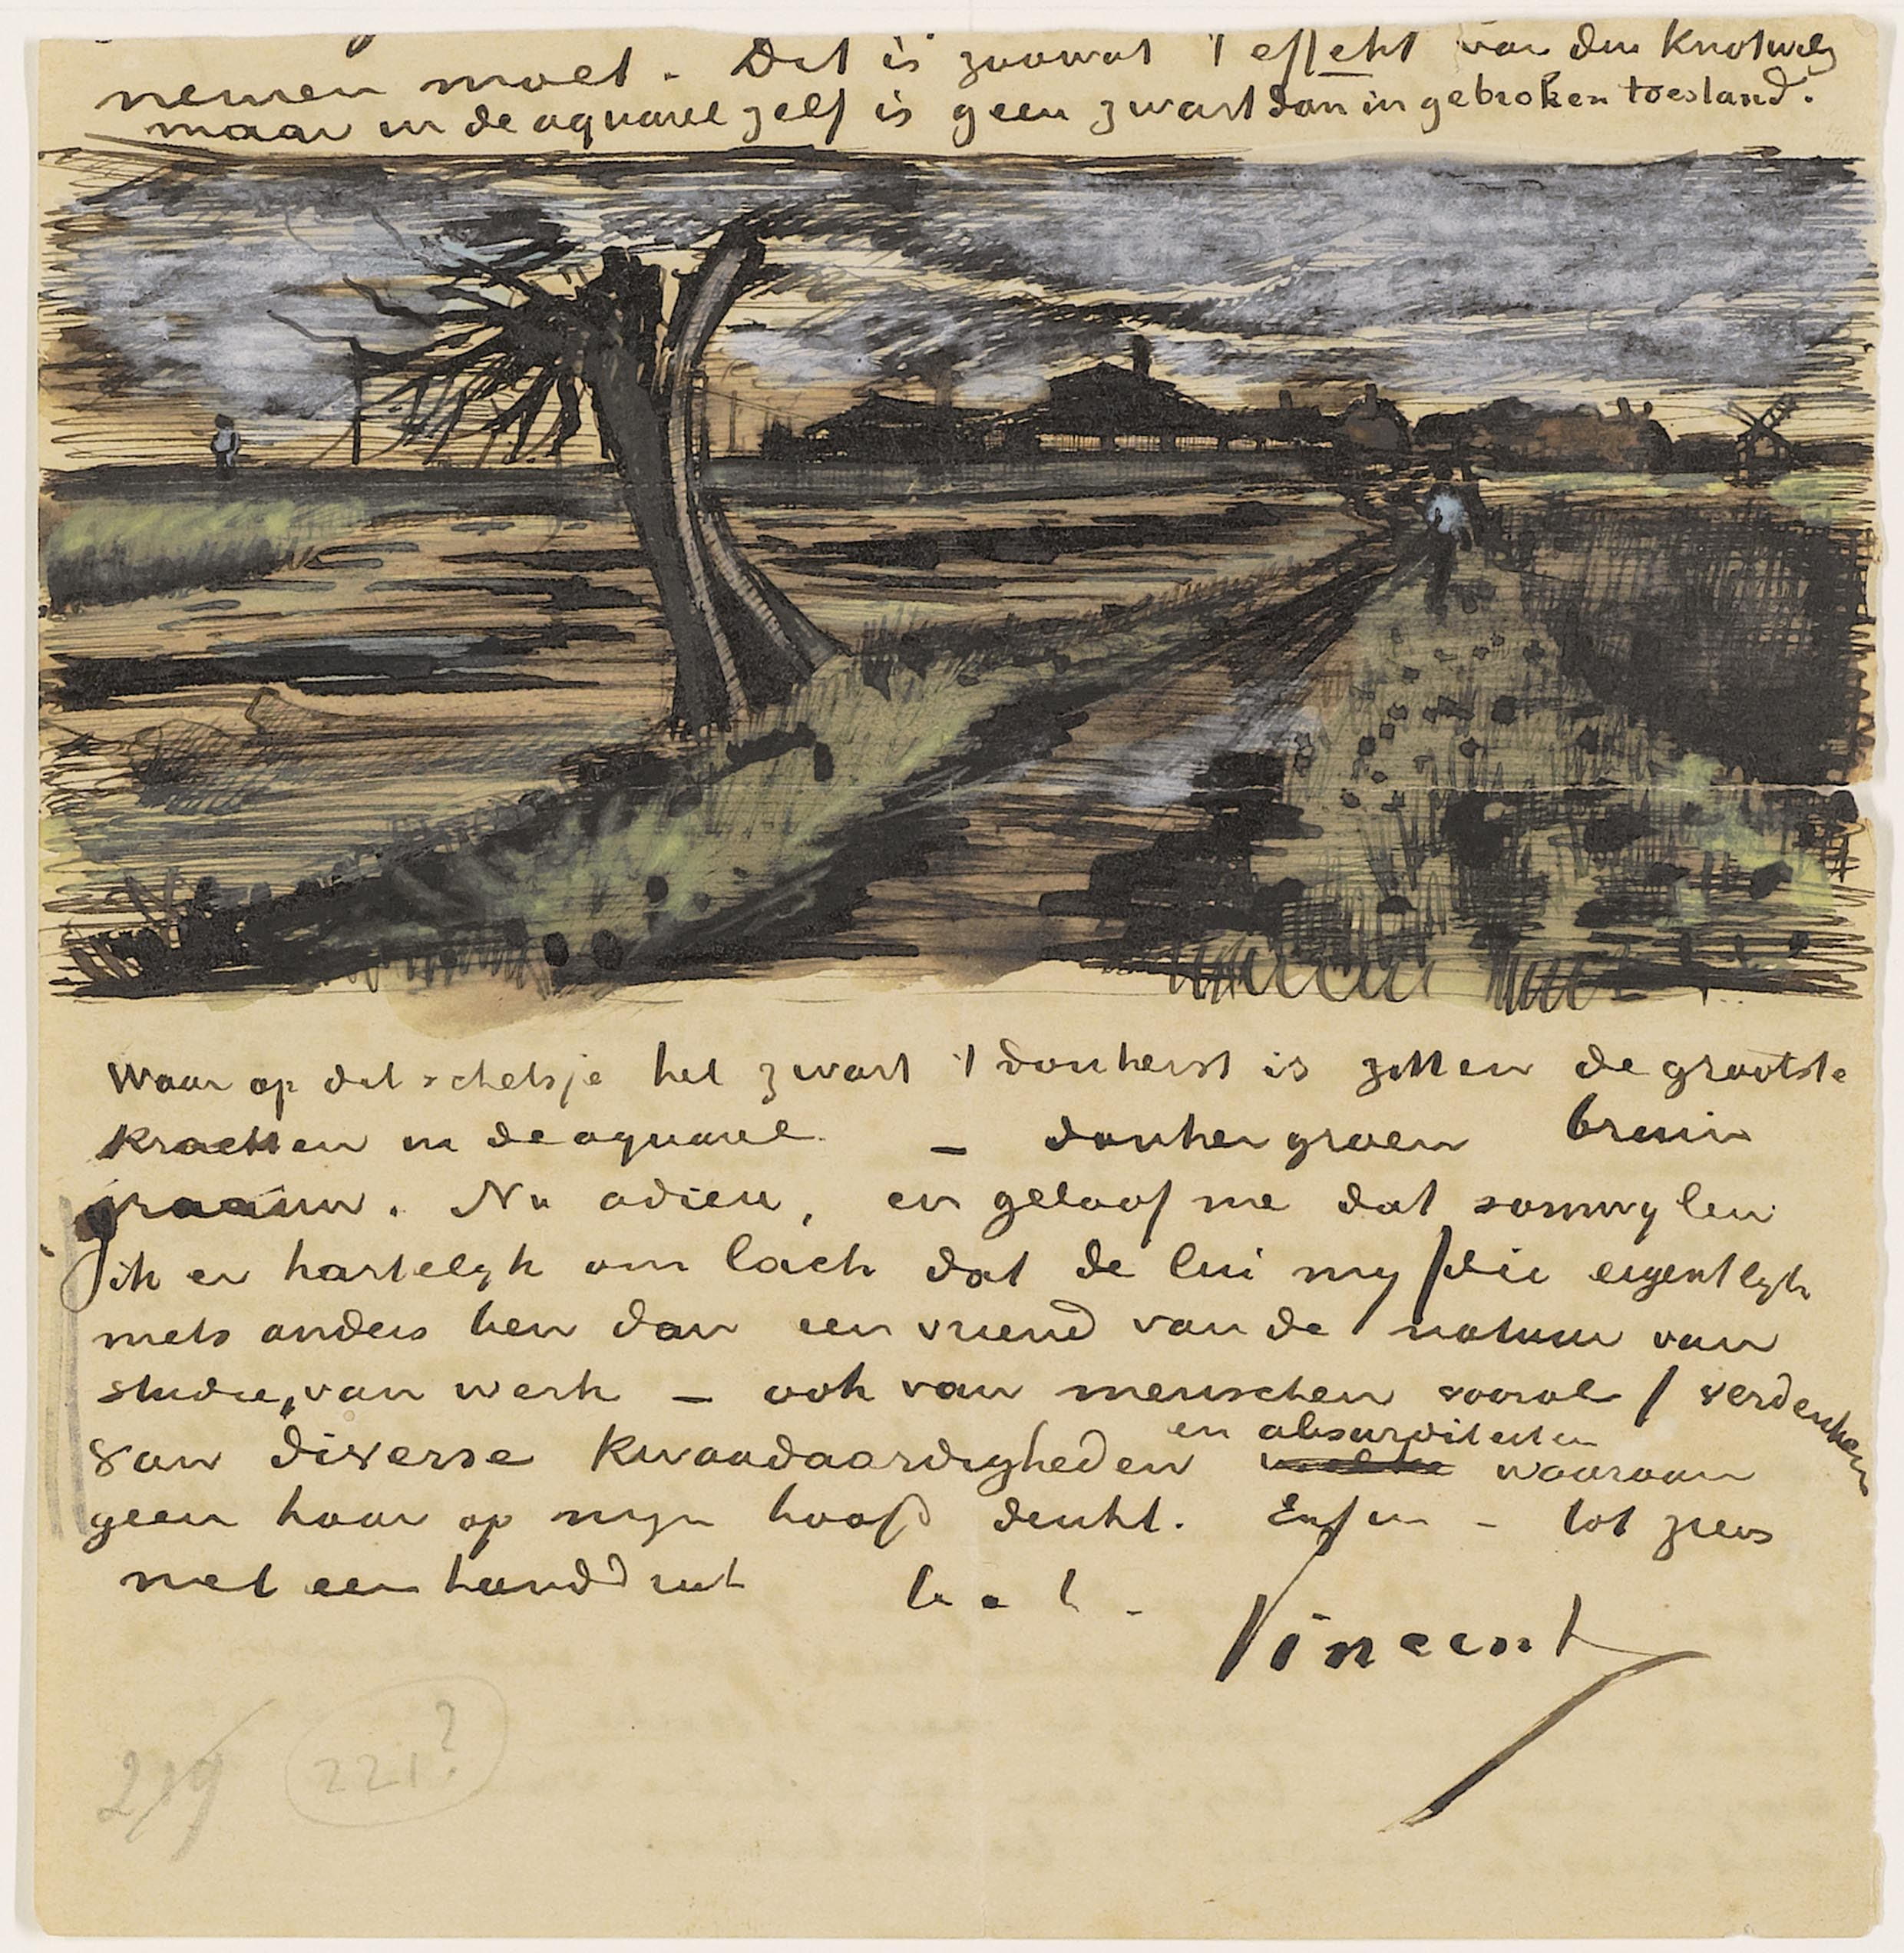 nemen moet. Dit is zoowat 't effekt van den knotwilg
maar in de aquarel zelf is geen zwart dan in gebroken toestand.
Waar op dit schetsje het zwart 't donkerst is zitten de grootste
krachten in de aquarel – donkergroen bruin
graauw. Nu adieu, en geloof me dat somwylen
ik er hartelyk om lach dat de lui my / die eigentlyk
niets anders ben dan een vriend van de natuur van
studie, van werk – ook van menschen vooral / verdenken
van diverse kwaadaardigheden en absurditeiten waaraan
geen haar op myn hoofd denkt. Enfin – tot ziens
met een handdruk
t. à t.
Vincent
219 221?